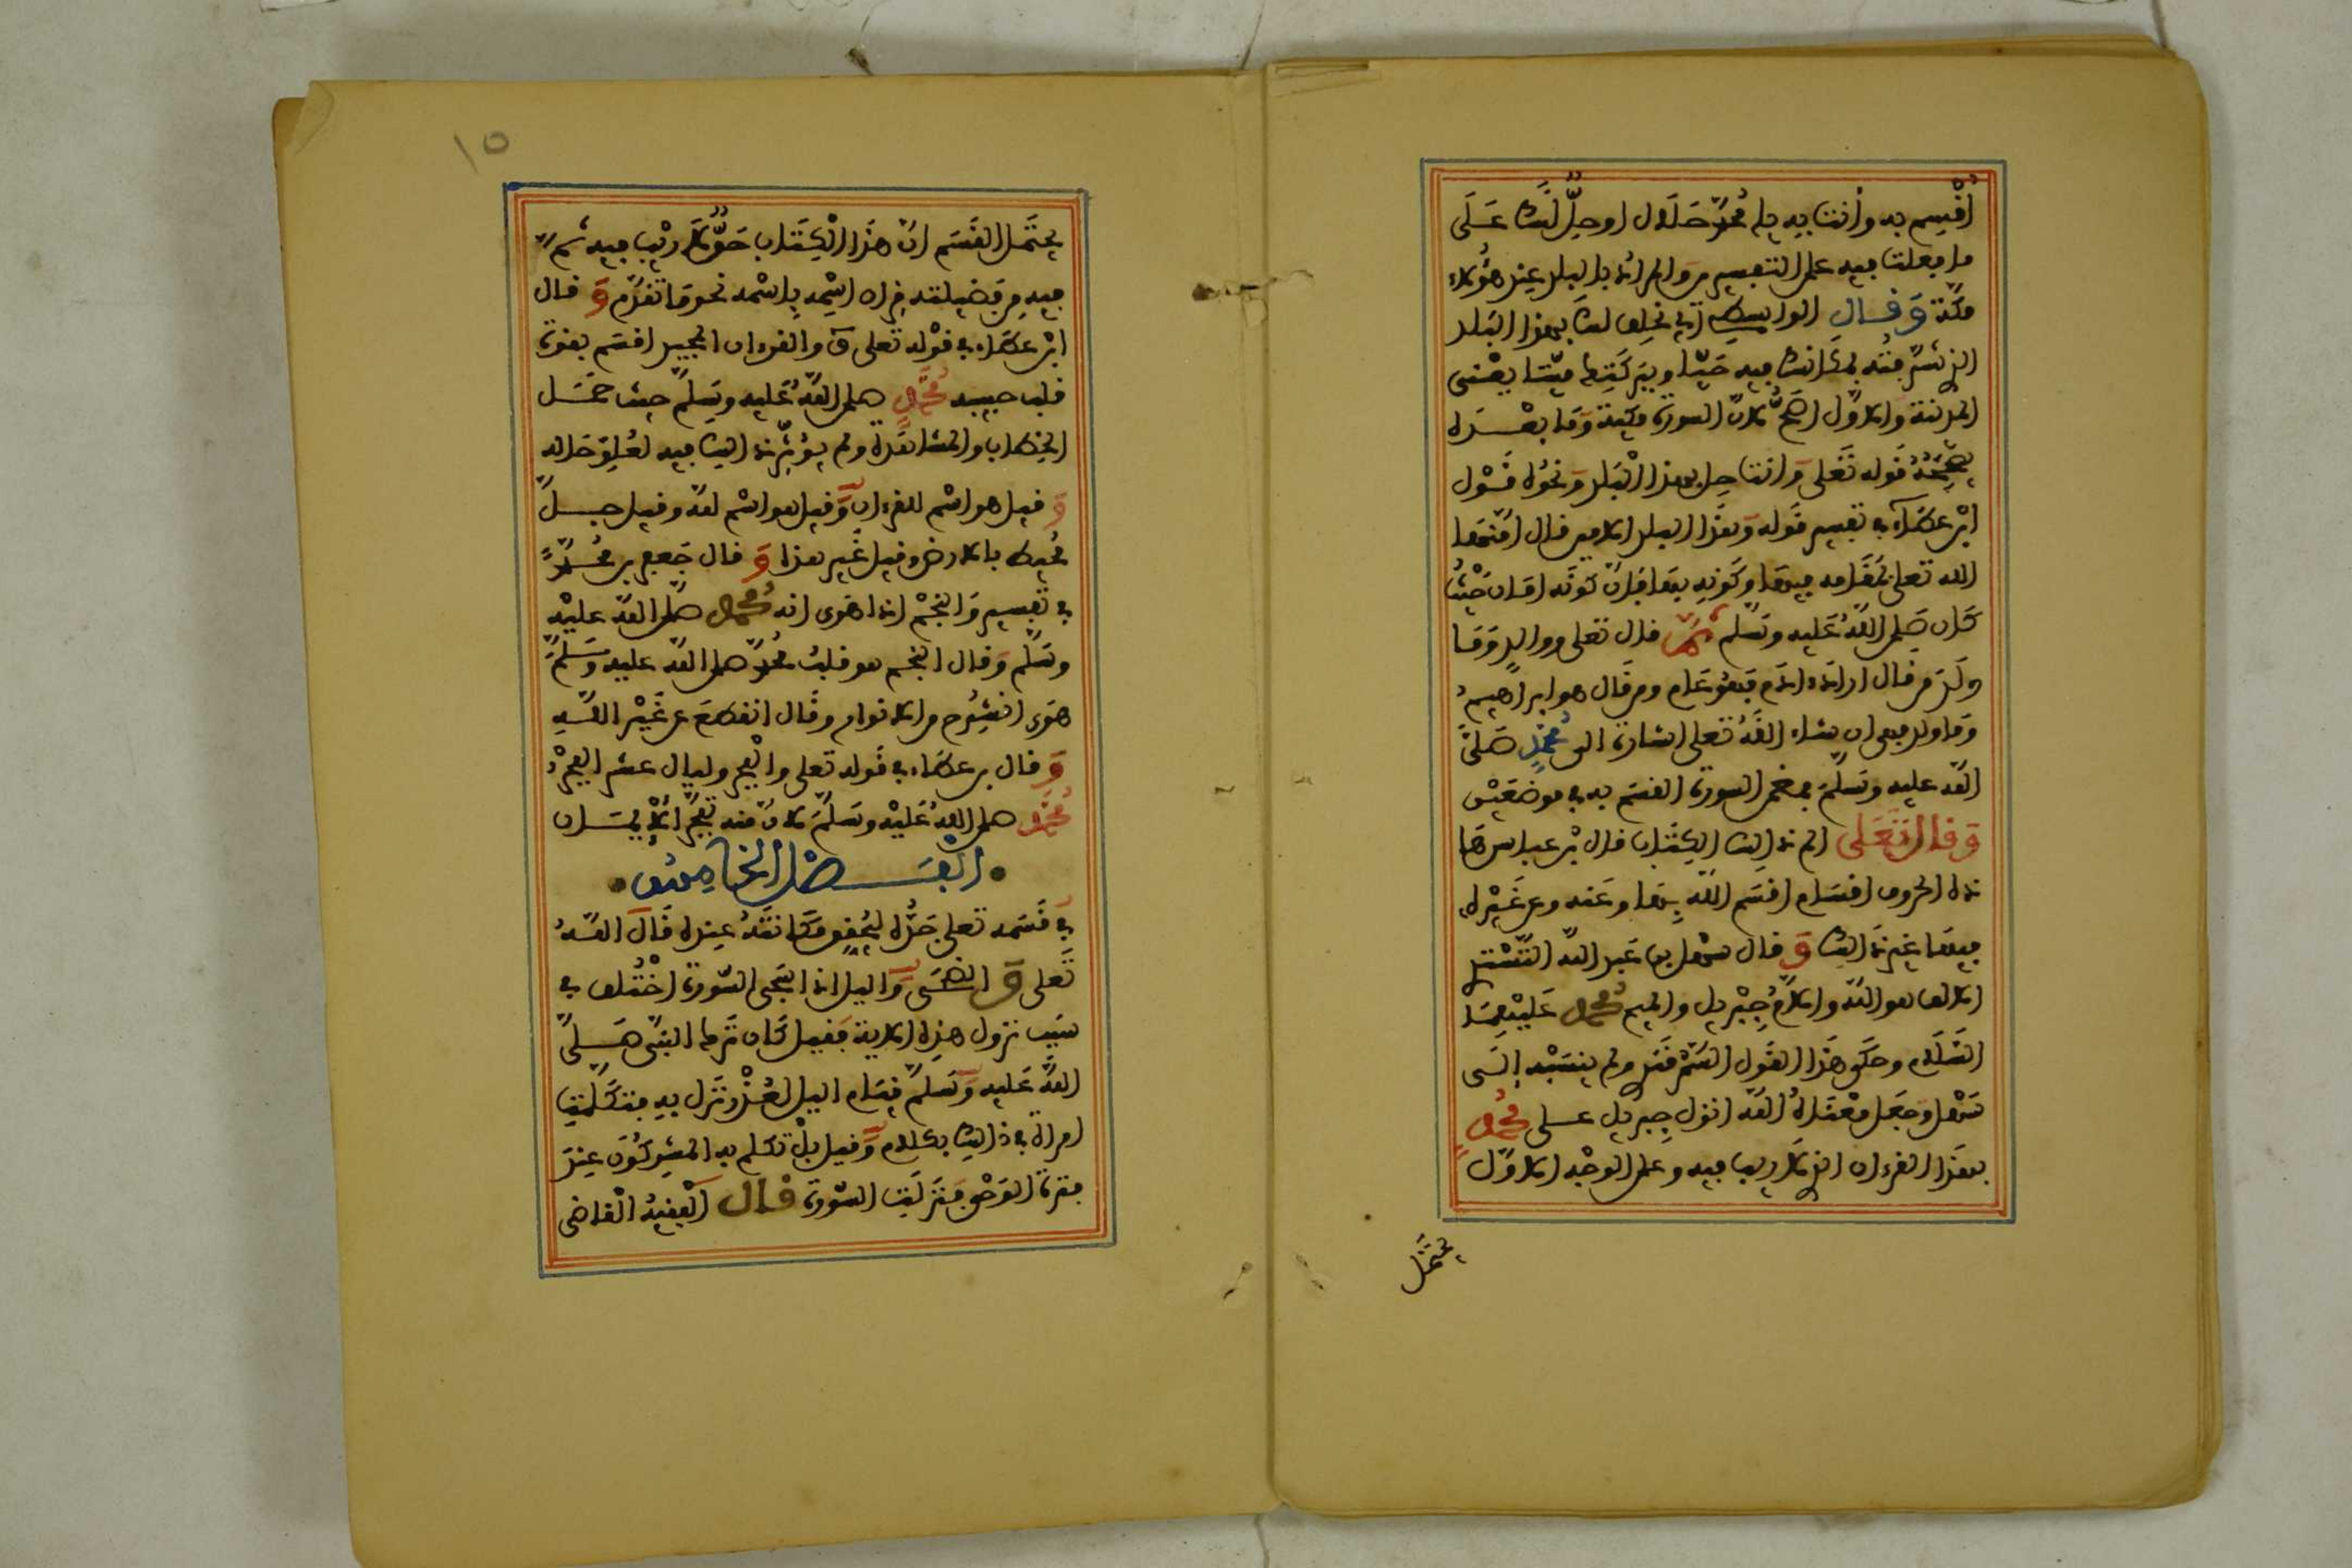 أُقْسِم به وأنت به يا محمد حَلال او حِلٌّ لَكَ عَلَى
ما فعلت فيه على التفسيرين والمراد بالبلد عند هؤلاء
مكّة وَقال الواسطي أي نحلف لك بهذا البَلد
الذي شرّفته بمكانك فيه حَيّا وببركتك ميّتا يعْني
المدينة والاوّل اصَحُّ لانّ السورة مكية وَما بعْده
يصَحّحُهُ قَوله تَعَلى وَانت حِل بهذا الْبَلد وَنحْوُه قَوْل
ابْن عَطَآء في تفسير قَوله وَهَذَا البلد الامين قال امّنَهَا
الله تعلى بمُقَامه فيهَا وكَونه بهَا فإنّ كَونَه امَان حَيْثُ
كَان صَلى اللَّهُ عَليه وسَلّم ثمّ قال تعلى ووالدٍ وَمَا
ولَدَ من قال ارادَ ءادَم فهُو عَام ومن قَال هو ابراهيمُ
وَما ولد فهي ان شاء اللَّهُ تعلى اشارة الى مُحَمَّدٍ صَلىَّ
اللّه عليه وسَلّمَ فتضمن السورة القسَم به في موضعَيْن
وَقال تَعَلى الم ذالِك الكِتَاب قال ابْن عباس هَا
ذه الحروف اقسَام اقسَم اللّه بِهَا وَعَنه وعن غَيْره
فيهَا غير ذَالِك وَقال سَهْل بن عَبد اللّه التُّسْتَري
الالف هو اللّه واللاّمُ جِبْريل والميم مُحَمّد عَليْهِمَا
السَّلَام وحَكى هَذَا القَول السَّمرقَندي ولم ينسُبْه إلى
سَهْل وَجَعَل معْنَاهُ اللّه انزل جِبريل على مُحَمّدٍ
بهَذا القرءان الذي لا ريب فيه وعلى الوجْه الاوّل
يحتَمَل
١٥
يحتَمل القَسَم انّ هَذَا الْكِتَاب حَقٌّ لا رَيْب فيه ثم
فيه من فضيلته قِران اسْمِه بِاسْمه نحو مَا تقدّم وَقال
ابْن عطَاء في قوْله تعلى ق والقرءان المجيد اقسَم بقوة
قلب حبيبه مُحَمَّدٍ صلى اللّهُ عَليه وسَلّمَ حيث حَمَل
الخِطاب والمشاهَدة ولم يؤثّر ذالِك فيه لعُلوّ حَاله
وَقيل هو اسْم للقرءان وَقيل هو اسْم لله وقيل جبلٌ
مُحيط بالارض وقيل غَير هذا وَقال جَعفر بن محمدٍ
في تفسير وَالنجْم اذا هَوى انه مُحَمّد صَلى اللّه عليْه
وسَلّم وَقال النجم هو قلبُ محمدٍ صلى اللّه عليه وَسَلّمَ
هَوى انشرَح من الانوار وقَال انقطعَ عن غَيْر اللّهِ
وَقال بن عطَاء في قَوله تعلى والْفجر وليال عشر الفجْرُ
مُحَمَّد صلى اللّهُ عَليْه وسَلّمَ لانّ منه تفجّر الإيمَان
الْفَصْل الخَامِسُ
في قَسَمه تعلى جَدُّه ليُحَقق مَكَانتَهُ عِنده قَالَ اللّهُ
تَعَلى وَالضُحَى وَاليل اذا سَجَى السّورة اخْتُلف في
سَبَب نزول هذه الاية فقيل كَان تَرك النبي صَلىَّ
اللّهُ عَليه وَسَلّم قيَام اليل لعُذْر نَزل به فتكَلّمَت
امرأة في ذالِك بكلام وَقيل بلْ تكلم به المشركُون عِندَ
فترة الوَحْي فنَزلَت السّورة قال الْفقيهُ الْقاضي